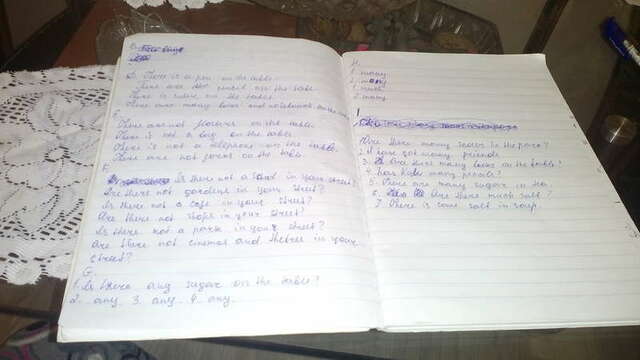 There is a pen on the table.
There are two pencil on the table
There is on the table.
There are many books and notebook on the
There are not flowers on the table.
There is not a bag on the table.
There is not a telephone on the table.
There are not on the table.
E
Is there not a in your street?
Are there not gardens in your street?
Is there not a cafe in your street?
Are there not shops in your street?
Is there not a park in your street?
Are there not cinemas and theatre in your
street?
G.
1. Is there any sugar on the table?
2. any 3. any 4. any
H.
1. many
2. many
3. much
2. many
I
Are there many in the
2. I have got many friends
3. Are there many books on the table?
4. many
5. There are many sugar in tea
6. Are there much salt?
7. There is some salt in soup.